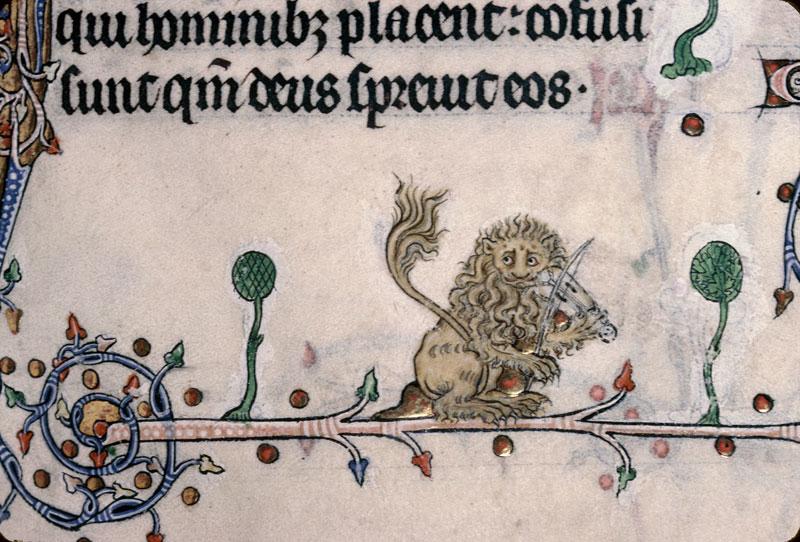 qui hominibꝫ placent: cōfusi
sunt qm̄ deus spreuit eos.